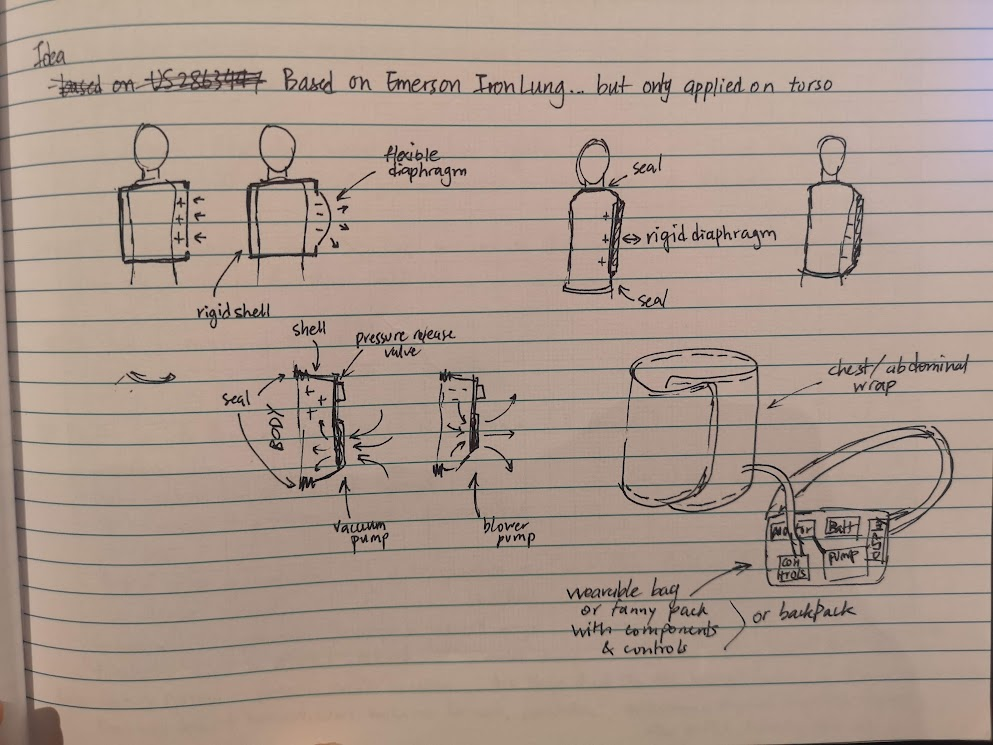 Idea
- based on US2863447 Based on Emerson Iron Lung... but only applied on torso
flexible
diaphragm
+
+
+
-
-
-
rigid shell
seal
+
+
+
rigid diaphragm
seal
shell
pressure release
valve
seal
BODY
+
+
+
vacuum
pump
blower
pump
chest/abdominal
wrap
motor
Batt
con
trols
pump
wearable bag
or fanny pack
with components
& controls
or backpack